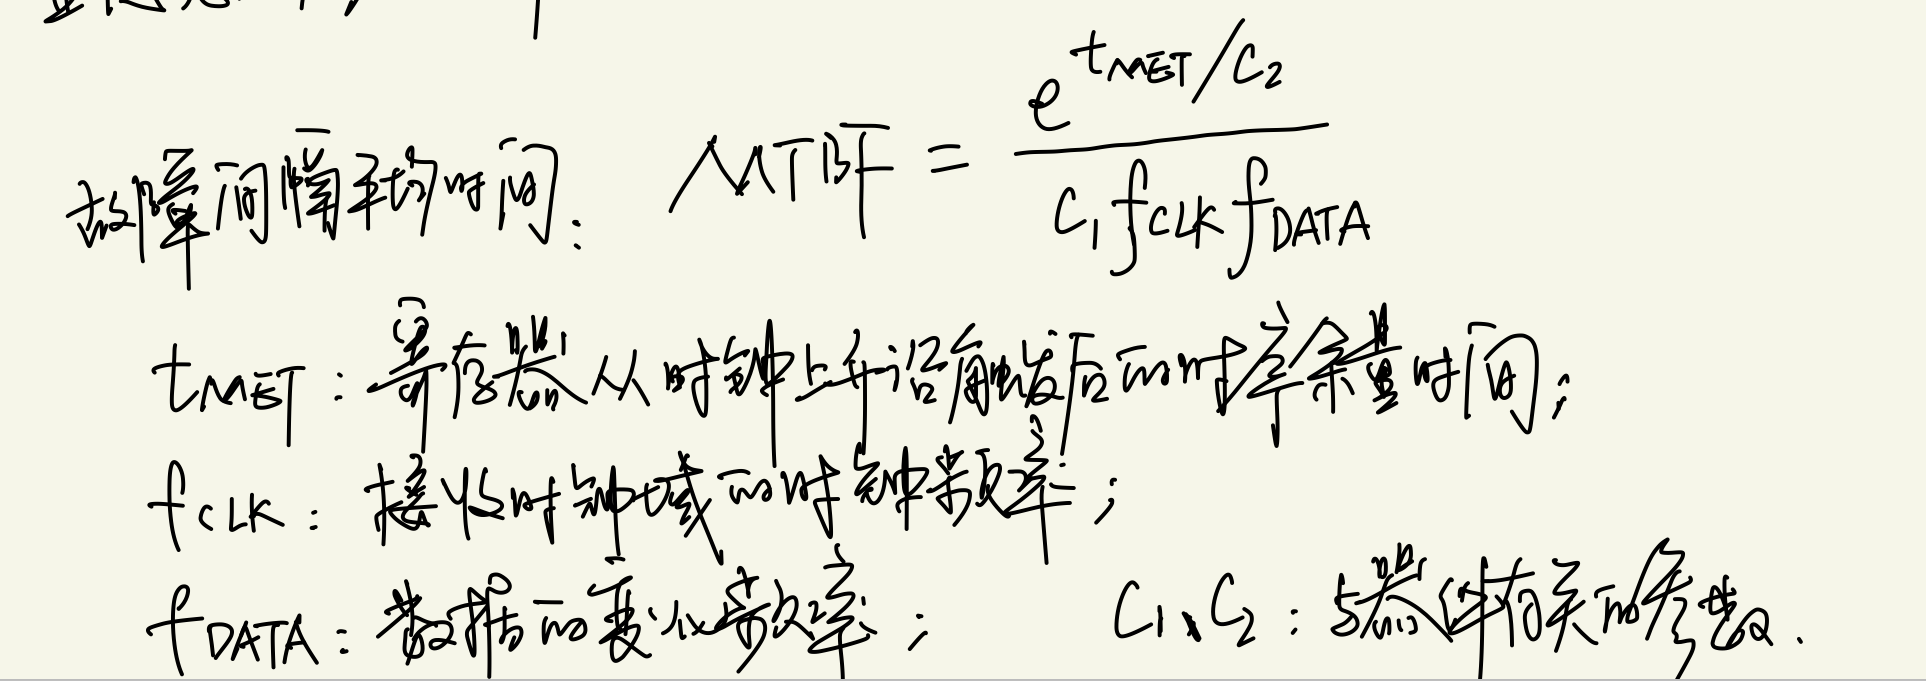 故障间隔平均时间: MTBF = e^{t_{MET}/C_2} / (C_1 f_{CLK} f_{DATA})
t_{MET}: 寄存器从时钟上升沿触发后的时序余量时间;
f_{CLK}: 接收时钟域的时钟频率;
f_{DATA}: 数据的变化频率; C_1、C_2: 与器件有关的参数.